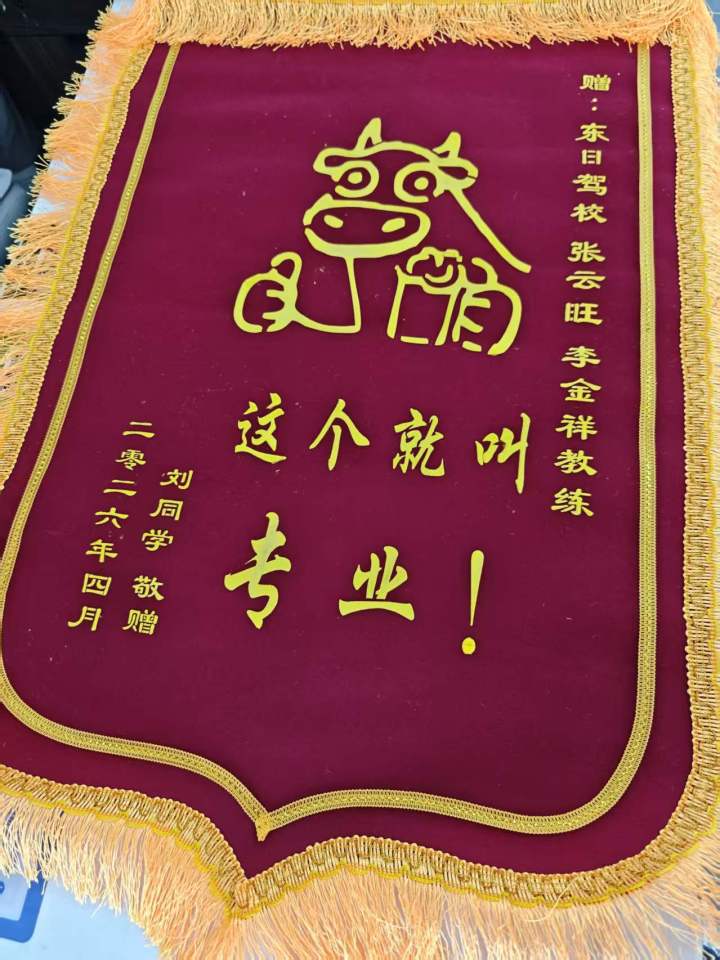 赠：东日驾校 张云旺 李金祥教练
这个就叫
专业！
刘同学 敬赠
二零二六年四月